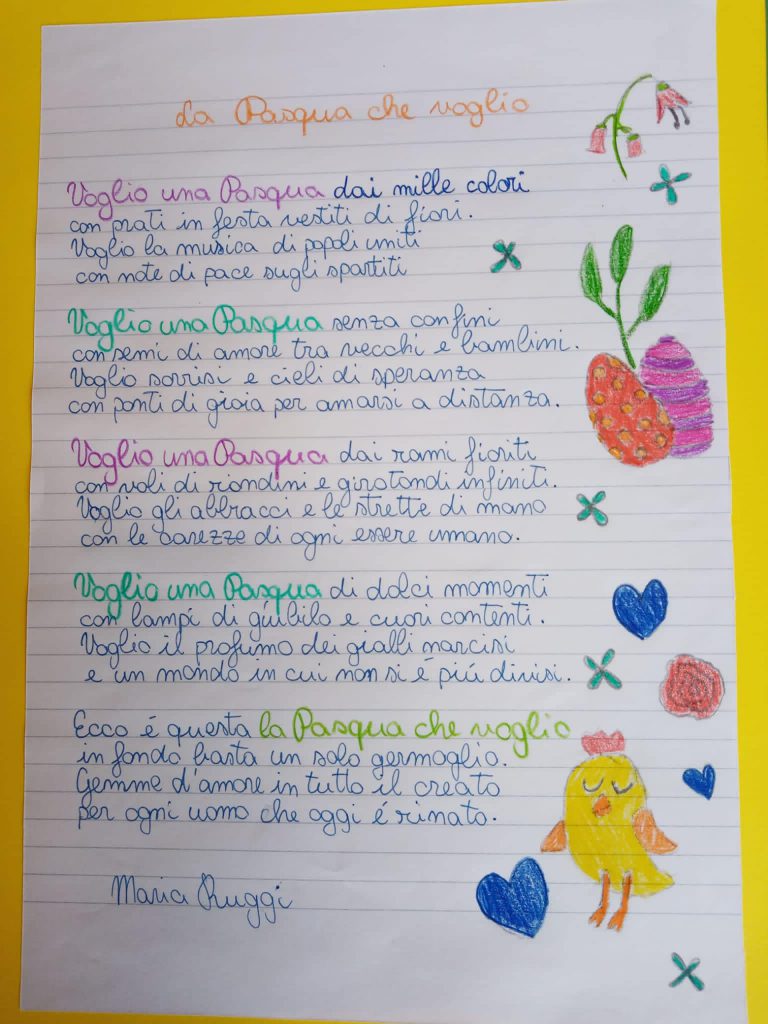 La Pasqua che voglio
Voglio una Pasqua dai mille colori
con prati in festa vestiti di fiori.
Voglio la musica di popoli uniti
con note di pace sugli spartiti
Voglio una Pasqua senza confini
con semi di amore tra vecchi e bambini.
Voglio sorrisi e cieli di speranza
con ponti di gioia per amarsi a distanza.
Voglio una Pasqua dai rami fioriti
con voli di rondini e girotondi infiniti.
Voglio gli abbracci e le strette di mano
con le carezze di ogni essere umano.
Voglio una Pasqua di dolci momenti
con lampi di giubilo e cuori contenti.
Voglio il profumo dei gialli narcisi
e un mondo in cui non si é piú divisi.
Ecco é questa la Pasqua che voglio
in fondo basta un solo germoglio.
Gemme d'amore in tutto il creato
per ogni uomo che oggi é rinato.
Maria Ruggi